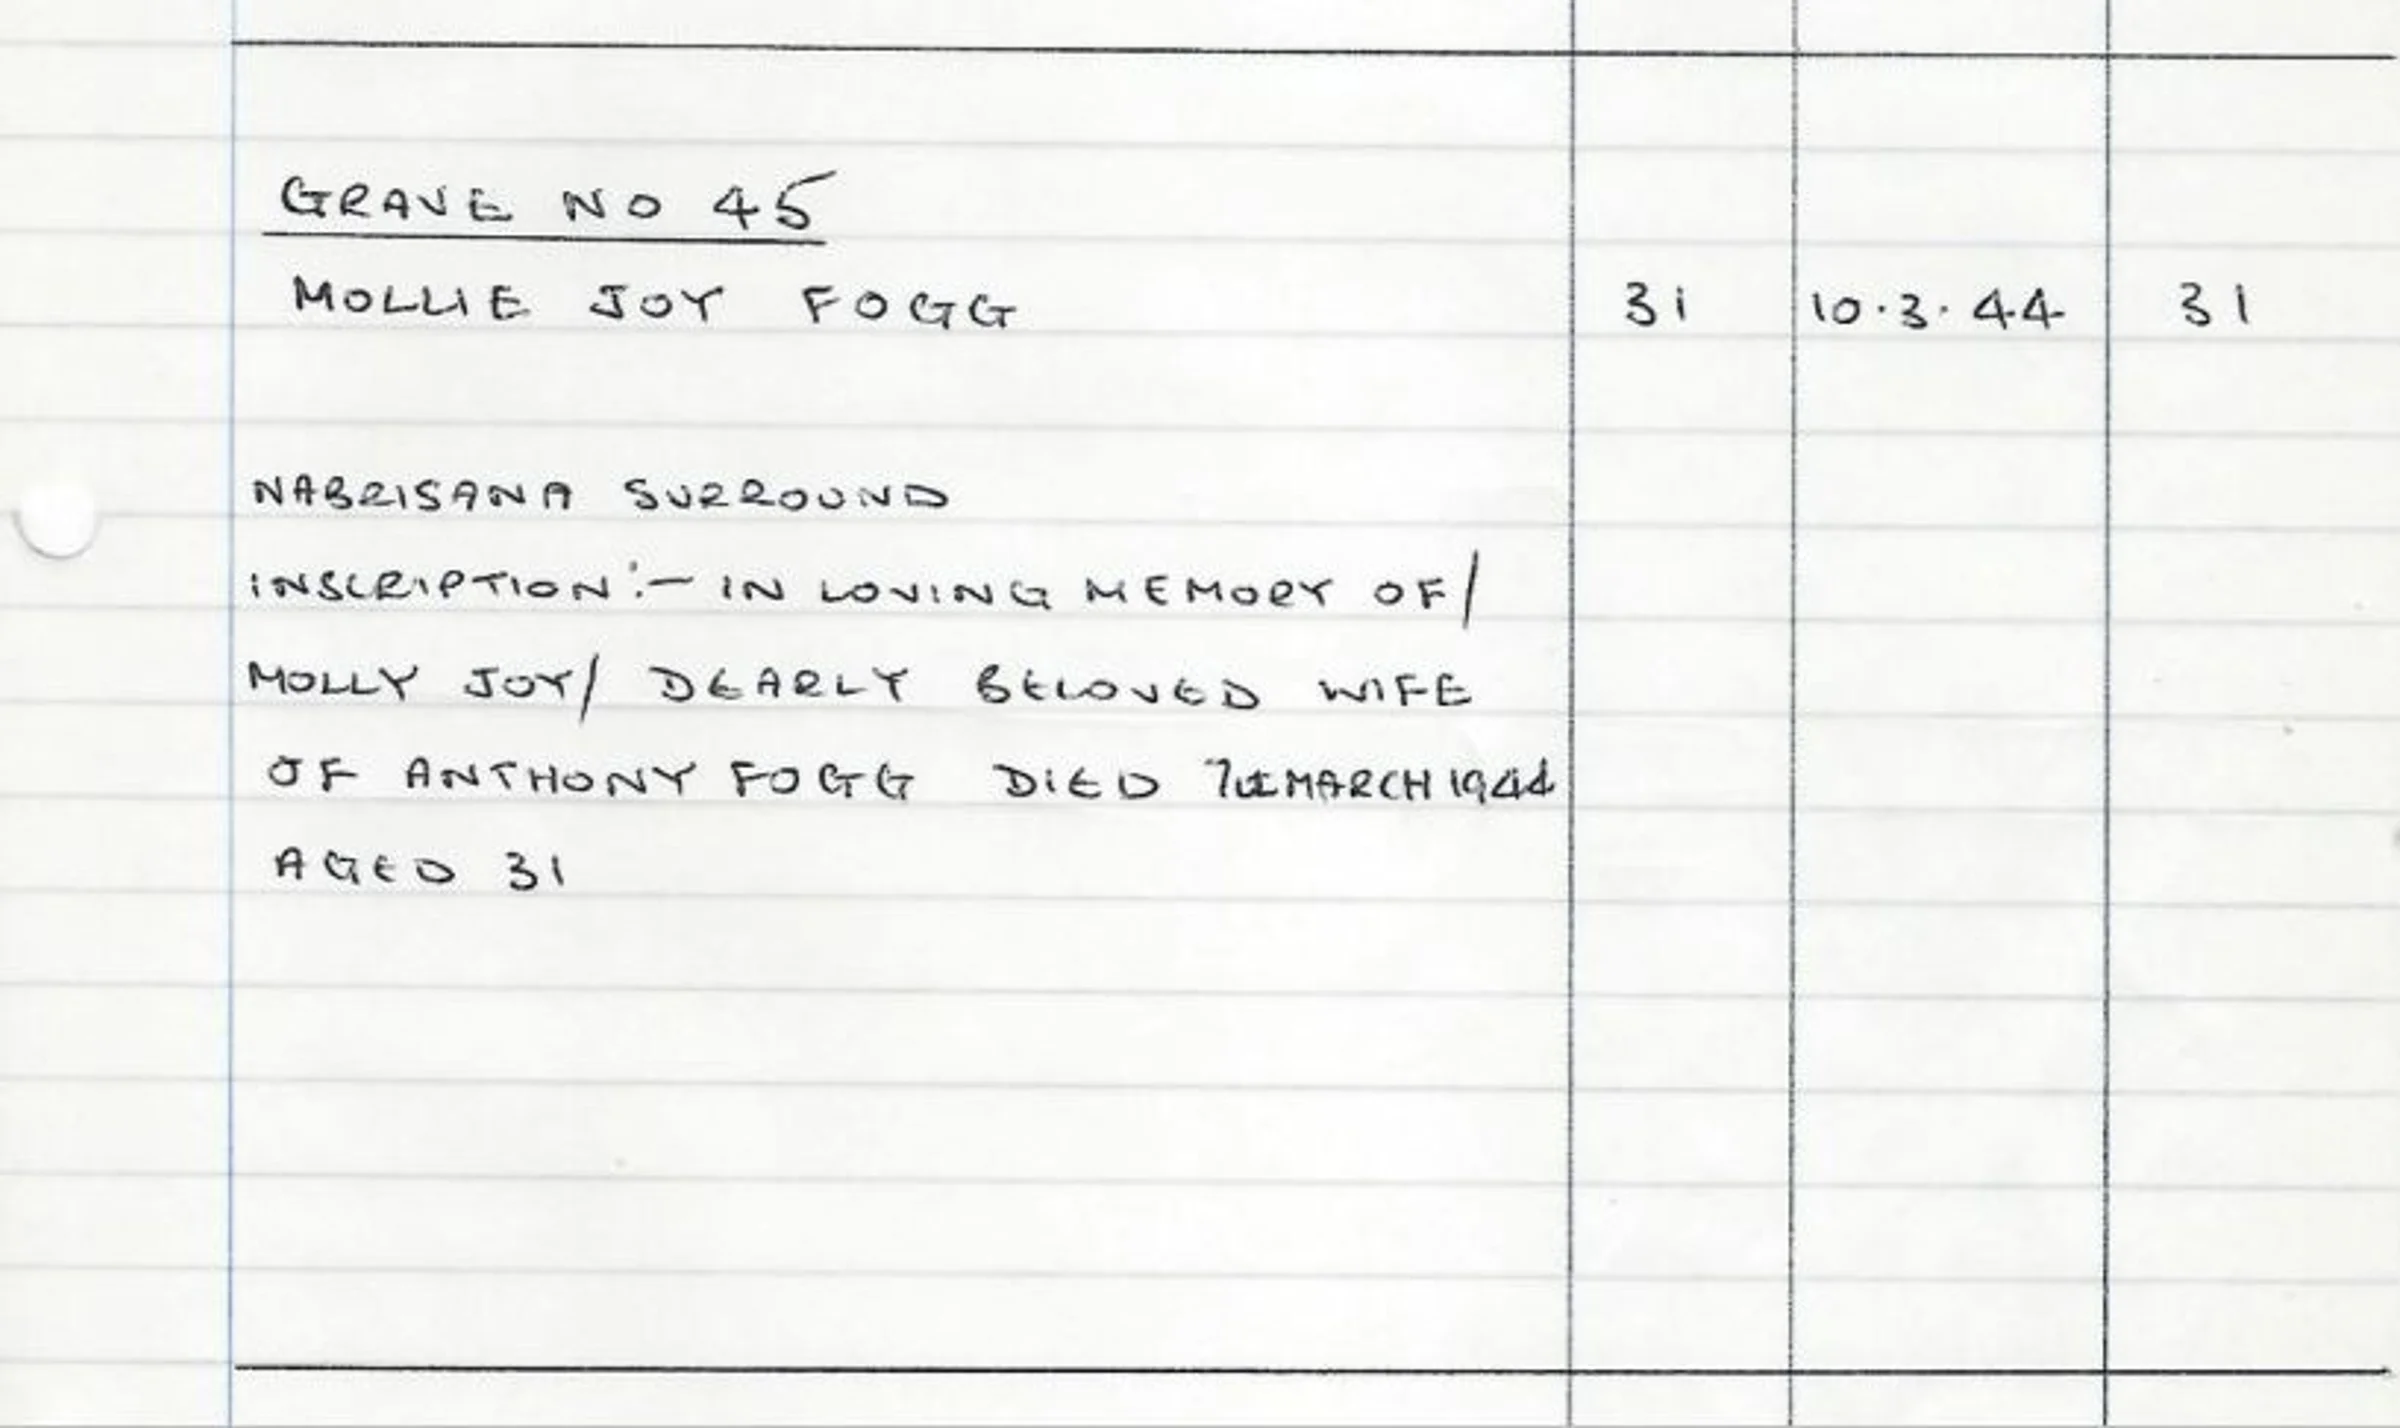 GRAVE NO 45
MOLLIE JOY FOGG 31 10.3.44 31
NABRISANA SURROUND
INSCRIPTION:- IN LOVING MEMORY OF/
MOLLY JOY/ DEARLY BELOVED WIFE
OF ANTHONY FOGG DIED 7th MARCH 1944
AGED 31